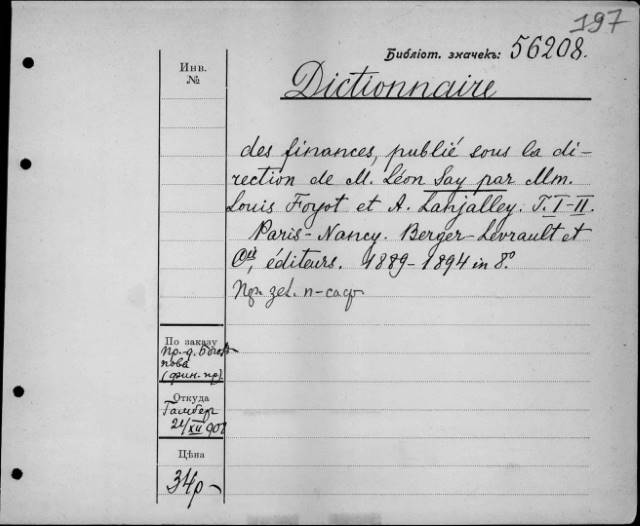 197
Библіот. значекъ: 56208.
Инв.
№
Dictionnaire
des finances, publié sous la di-
rection de M. Léon Say par Mm.
Louis Foyot et A. Lanjalley. T. I-II.
Paris-Nancy. Berger-Levrault et
Cie, éditeurs. 1889-1894 in 8.°
По заказу
(фин. пр)
Откуда
Гамбер
21/XII 901
Цѣна
34р-